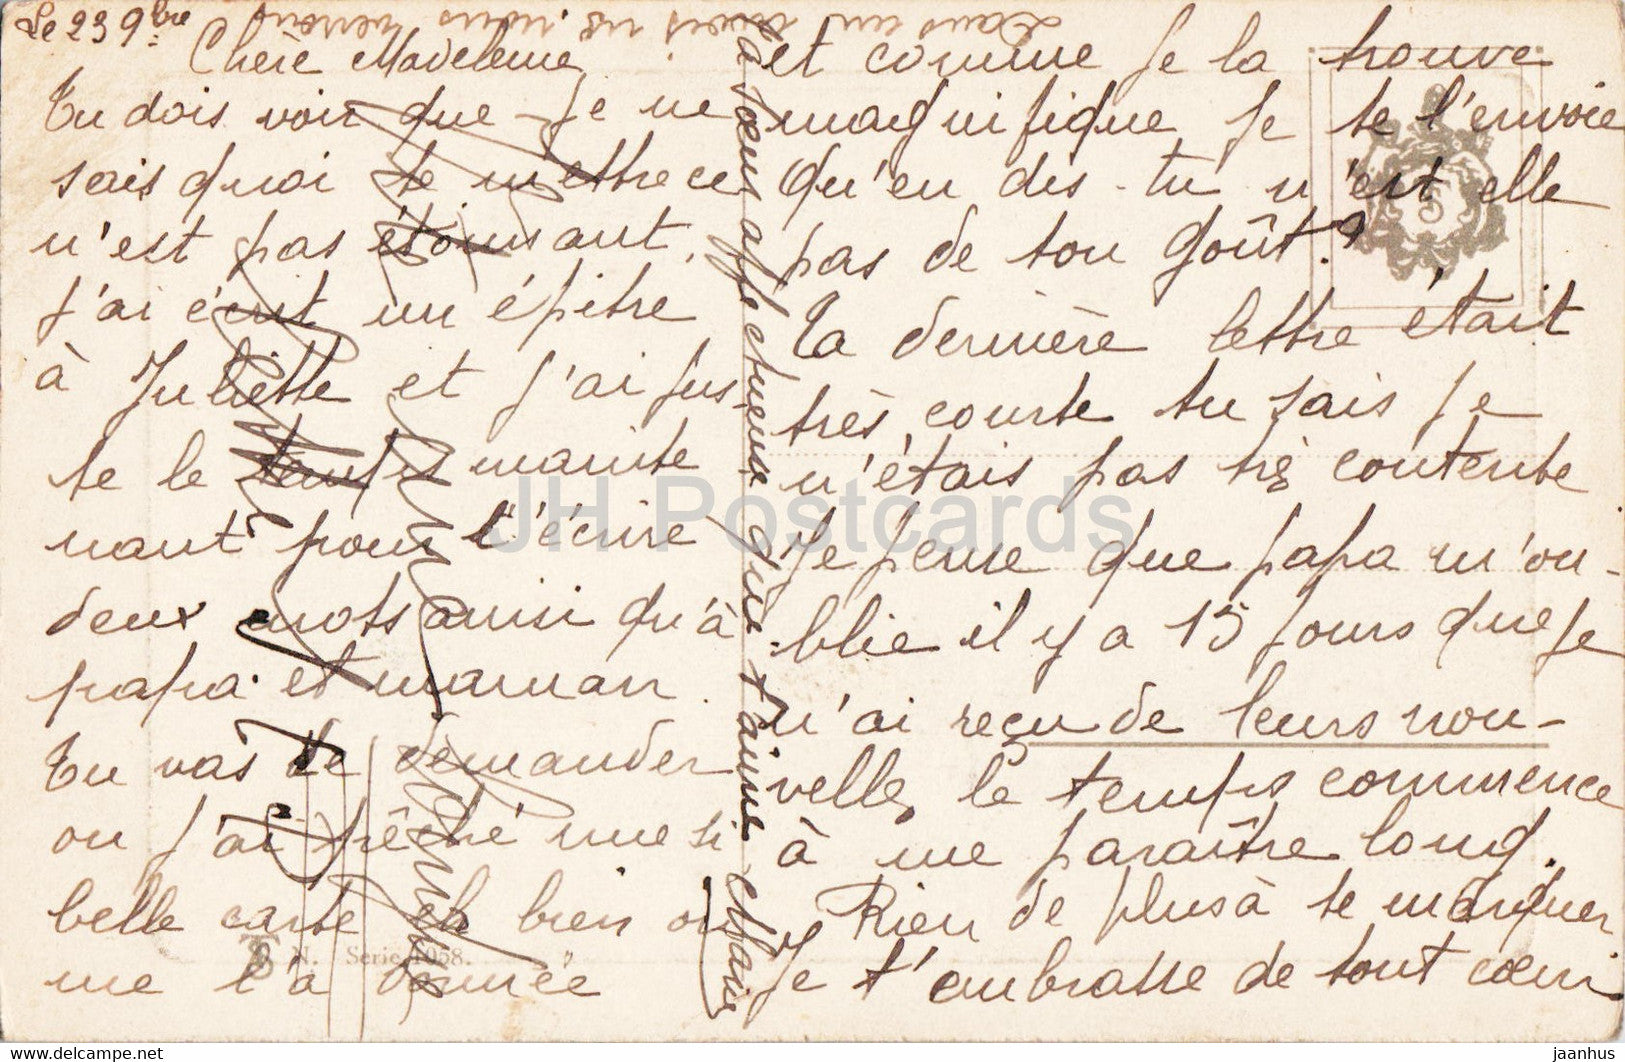 Le 23 9bre
Chère Madeleine
Tu dois voir que je ne
sais quoi te mettre ce
n'est pas étonnant,
j'ai écrit un épitre
à Juliette et j'ai jus-
te le temps mainte
nant pour t'écrire
deux mots ainsi qu'à
papa et maman.
Tu vas te demander
ou j'ai pêché une si
belle carte eh bien on
me l'a donnée
et comme je la trouve
magnifique je te l'envoie
Qu'en dis-tu n'est elle
pas de ton goût?
Ta dernière lettre était
très courte tu sais je
n'étais pas très contente
Je pense que papa m'ou-
blie il y a 15 jours que je
n'ai reçu de leurs nou-
velles, le temps commence
à me paraître long.
Rien de plus à te marquer
Je t'embrasse de tout cœur
Ta sœur affectueuse qui t'aime
Dans un mois ns nous verrons
N. Série 1058.
JH Postcards
jaanhus @ ecrater.com